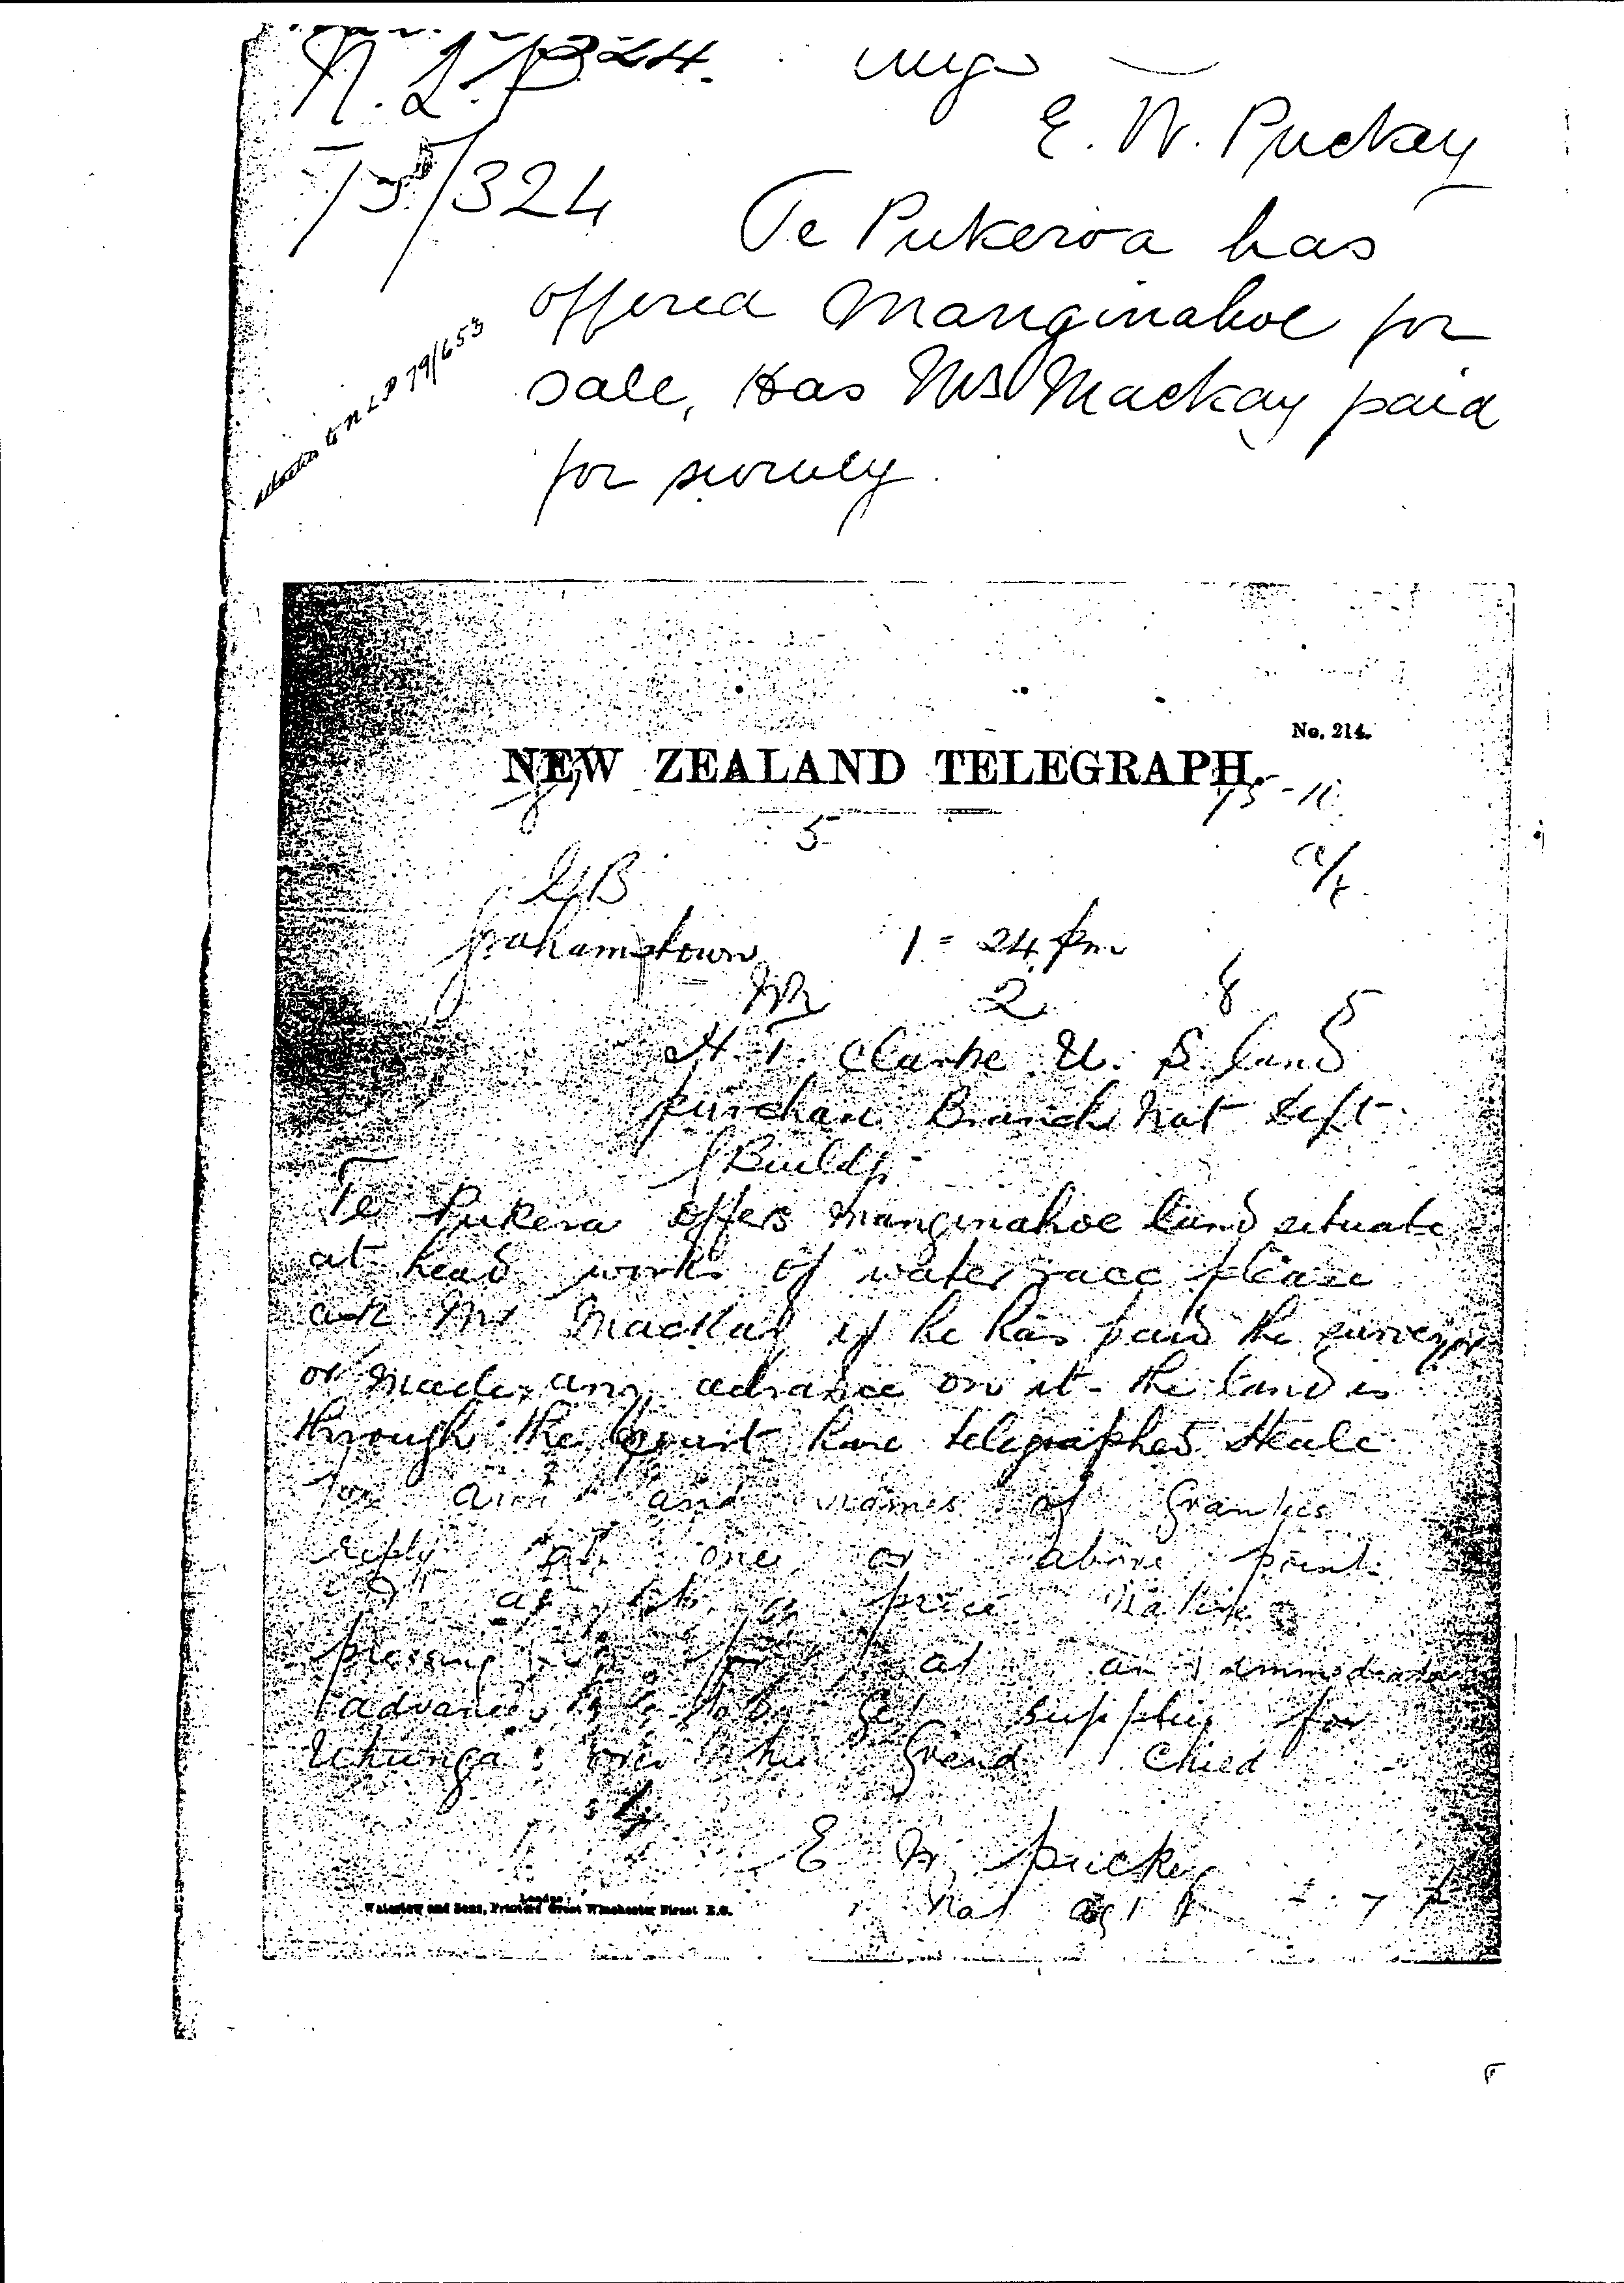 N.L.P
75/324
E. W. Puckey
Te Pukeroa has
offered Manginahoe for
sale, Has Mr Mackay paid
for survey.
to NLP 79/653
No. 214.
NEW ZEALAND TELEGRAPH.
75-11
5
GB
Grahamstown 1=24 pm
2 8
H. T. Clarke U. S. land
purchase Branch Nat Dept
G Buildgs
Te Pukeroa offers Manginahoe land situate
at head works of water race please
ask Mr Mackay if he has paid the surveyor
or made any advance on it - the land is
through the Court have telegraphed Heale
for area and names of Grantees
reply at once on above point
as to price Natives
pressing at an immediate
advance to get supplies for
Uhunga: over his friend
E W Puckey
Nat agt
London:
Waterlow and Sons, Printers Great Winchester Street E.C.